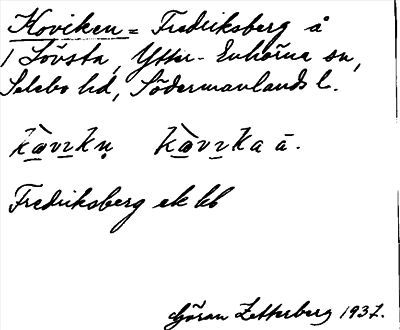 Koviken = Fredriksberg å
1 Lövsta, Ytter-Enhörna sn,
Selebo hd, Södermanlands l.
kæ̀vıkn̥ kæ̀vıka ä.
Fredriksberg ek kb
Göran Zetterberg 1937.